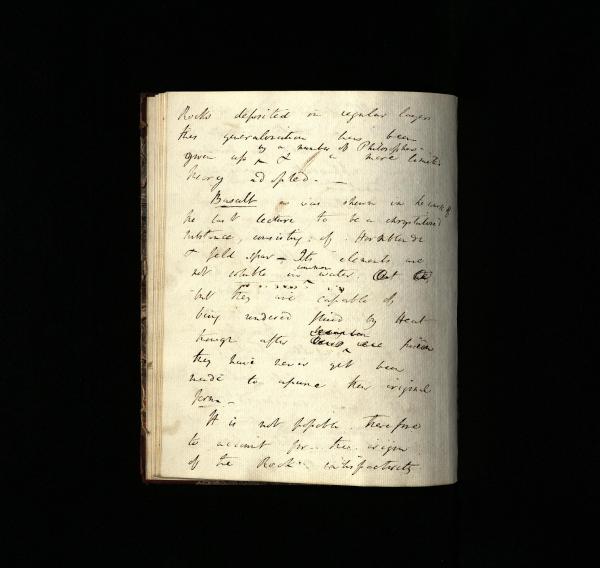 Rocks deposited in regular layers
this generalization has been
by a number of Philosophers
given up & a more limited
theory adopted. —
Basalt as was shewn in the course of
the last lecture to be a chrystalised
substance, consisting of Hornblende
& feld spar — Its elements are
common
not soluble in water. But
but they are capable of
being rendered fluid by Heat
though after fusion
they have never yet been
made to assume their original
form —
It is not possible therefore
to account for the origin
of the Rock satisfactorily